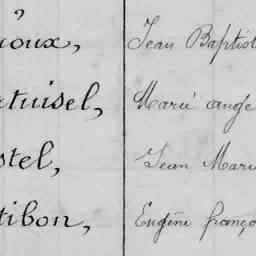 ioux, Jean Baptist
rtuisel, Marie ange
stel, Jean Marie
tibon, Eugène franço